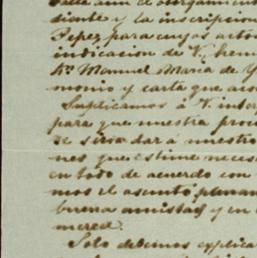 siante y la inscripcion
Pepez para cuyos acto
indicacion de V. hem
Dn. Manuel Maria de Y
monio y carta que aco
Suplicamos á V. inter
para que nuestra proc
se sirva dar á nuestro
nes que estime neces
en todo de acuerdo con
mos el asunto, plenam
buena amistad y en
merced.
Solo debemos explica